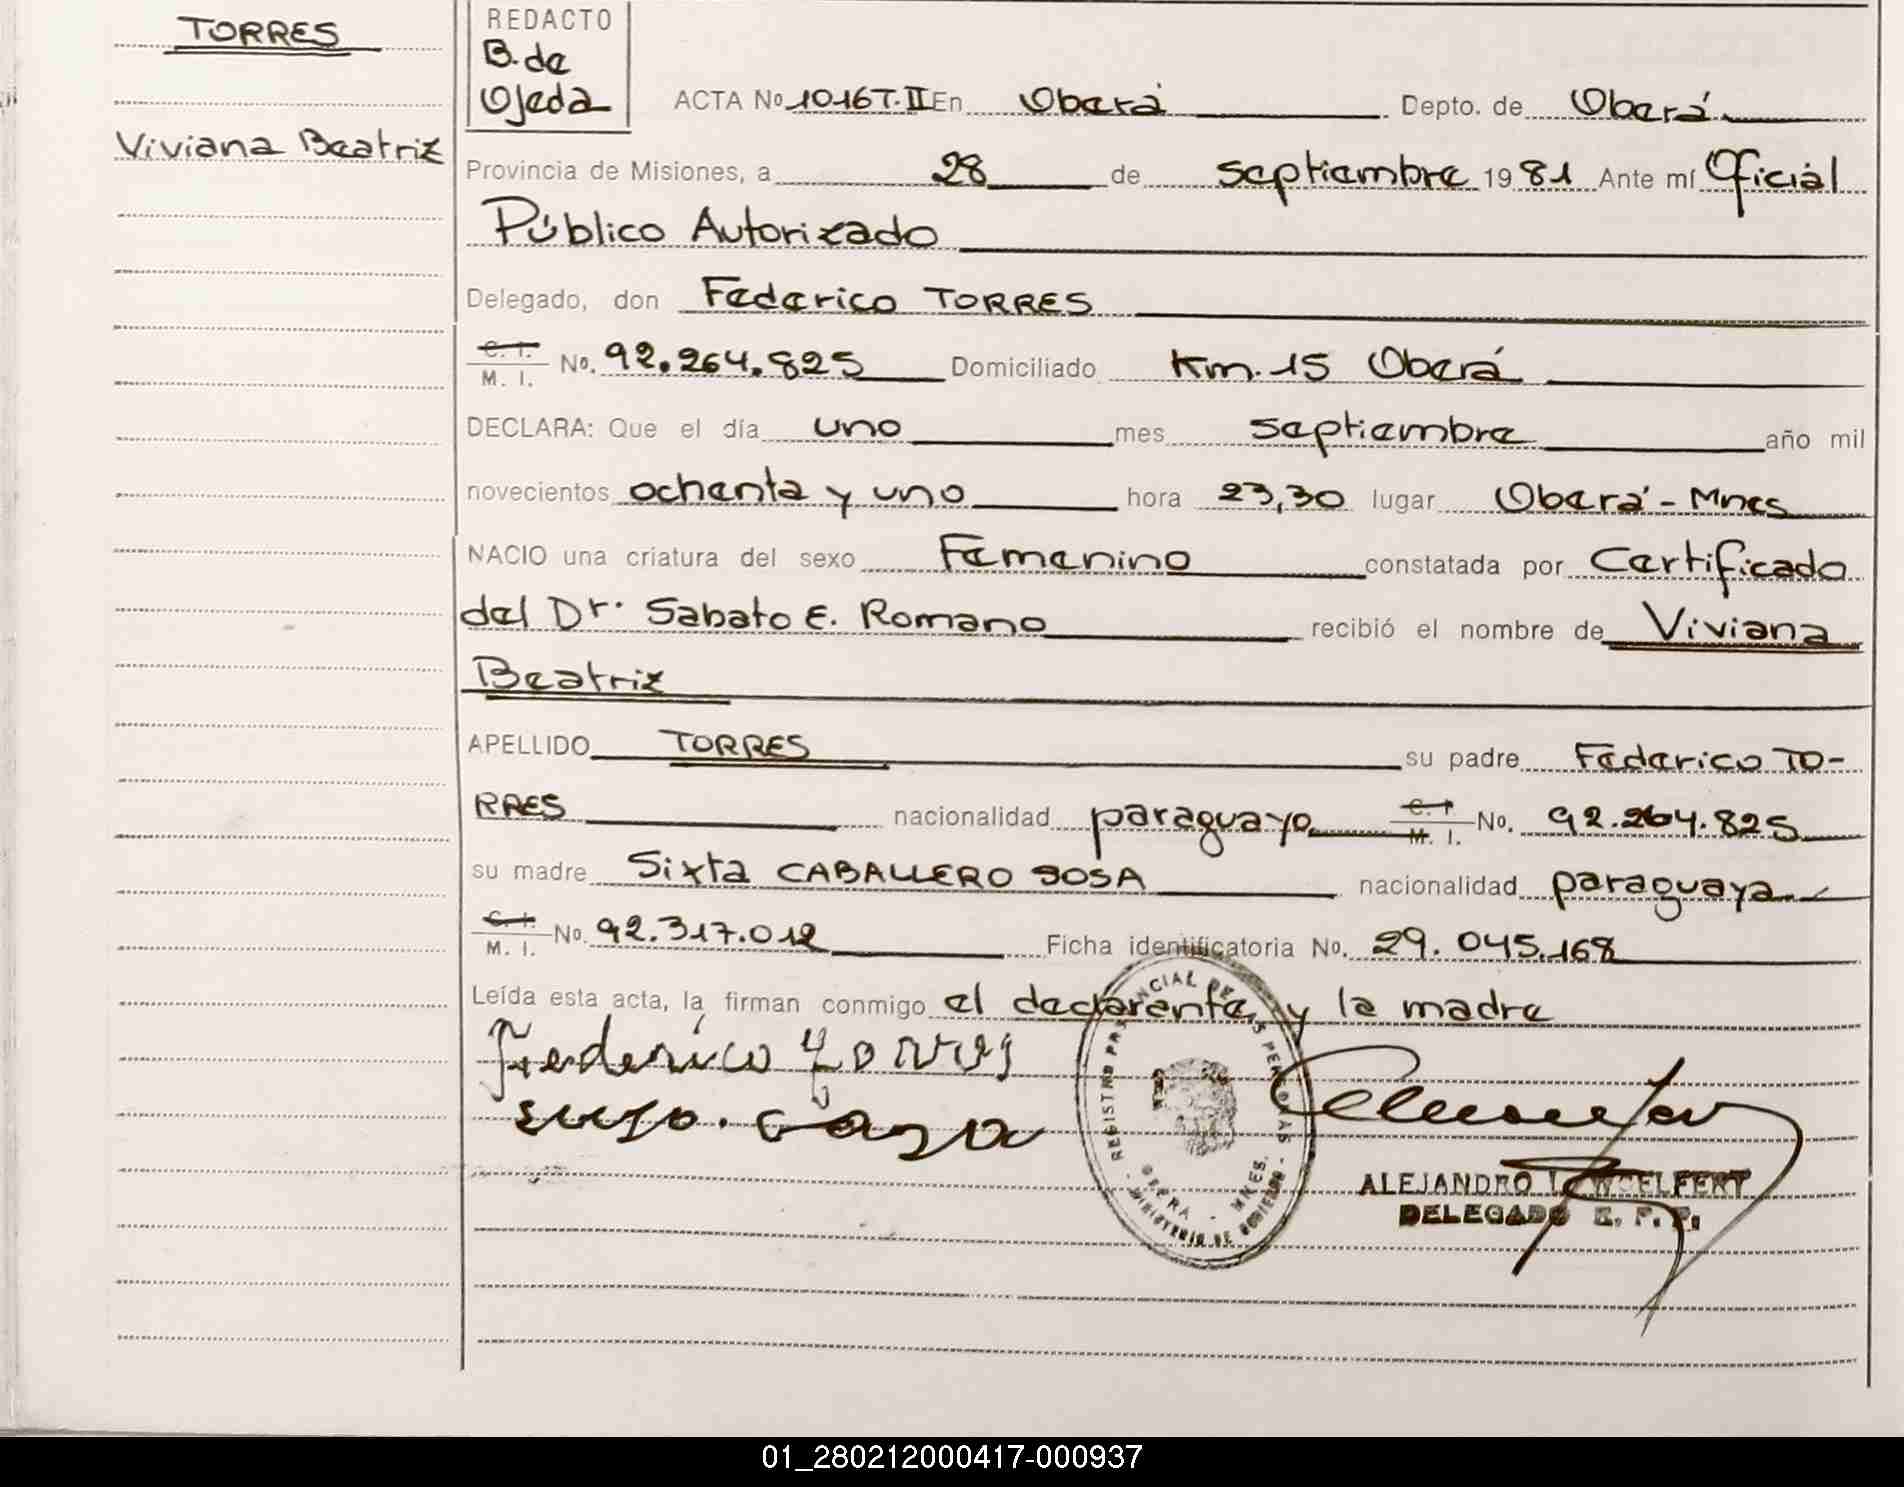 TORRES
Viviana Beatriz
REDACTO
B. de
Ojeda
ACTA No 1016 T. II En Oberá Depto. de Oberá
Provincia de Misiones, a 28 de septiembre 1981 Ante mí Oficial
Público Autorizado
Delegado, don Federico TORRES
C. I. M. I. No. 92.264.825 Domiciliado Km. 15 Oberá
DECLARA: Que el día uno mes septiembre año mil
novecientos ochenta y uno hora 23,30 lugar Oberá - Mnes
NACIO una criatura del sexo Femenino constatada por Certificado
del Dr. Sabato E. Romano recibió el nombre de Viviana
Beatriz
APELLIDO TORRES su padre Federico TO-
RRES nacionalidad paraguayo C. I. M. I. No. 92.264.825
su madre Sixta CABALLERO SOSA nacionalidad paraguaya
C. I. M. I. No. 92.317.012 Ficha identificatoria No. 29.045.168
Leída esta acta, la firman conmigo el declarante y la madre
Federico Torres
REGISTRO PROVINCIAL DE LAS PERSONAS
OBERA - MNES.
MINISTERIO DE GOBIERNO
ALEJANDRO WOELFERT
DELEGADO R. P. P.
01_280212000417-000937